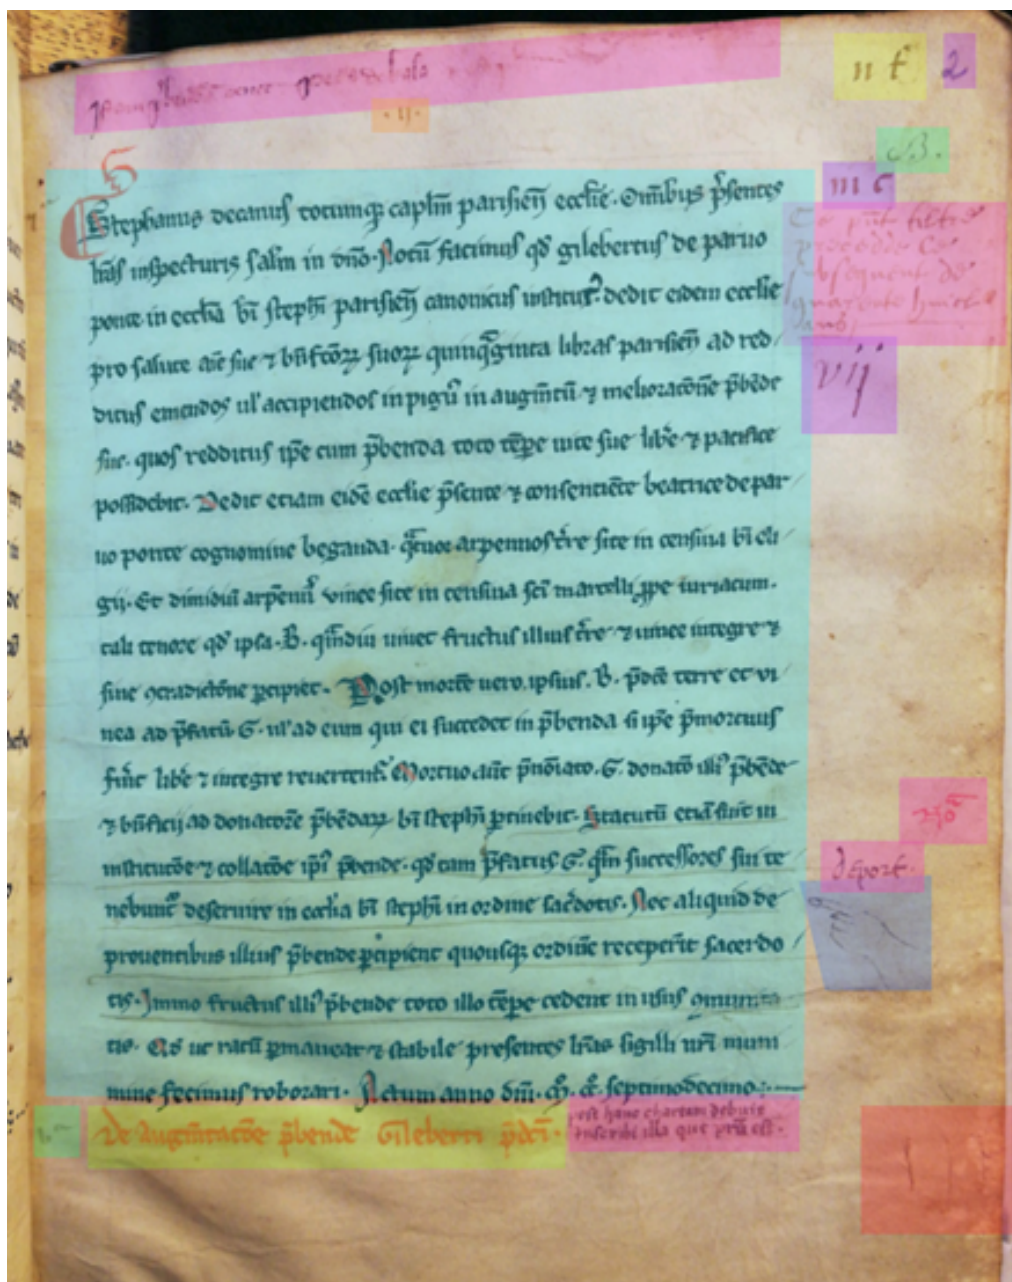 n t 2
. ij .
.B.
m c
Stephanus decanus totumq; caplm̄ parisień eccl̄ie. Om̄ibus p̄sentes
lr̄as inspecturis salm̄ in dn̄o. Notū facimus qd̓ gilebertus de paruo
ponte in eccl̄ia bī steph̄i parisień canonicus institut᷒. dedit eidem eccl̄ie
pro salute aīe sue ⁊ bn̄fc̄oꝝ suoꝝ quinq̄ginta libras parisień ad red
vij
ditus emendos ul̓ accipiendos in pigñ in augm̄tū ⁊ melioratōnē p̄bēde
sue. quos redditus ip̄e cum p̄benda toto tēꝑe uite sue lib̄e ⁊ pacifice
possidebit. Dedit etiam eidē eccl̄ie p̄sente ⁊ consentiēte beatrice de par
uo ponte cognomine beganda. q̄tuor arpennos t̄re site in censiua bī eli
gij. Et dimidiū arpennī vinee site in censiua sc̄i marcelli ꝓpe iuriacum.
tali tenore qd̓ ipsa .B. q̄mdiu uiuet fructus illius t̄re ⁊ uinee integre ⁊
sine ꝯtradictōne ꝑcipiet. Post mortē uero ipsius .B. p̄dc̄e terre et vi
nea ad p̄fatū .G. ul̓ ad eum qui ei succedet in p̄benda si ip̄e p̄mortuus
fūit lib̄e ⁊ integre reuertent᷒. Mortuo aūt p̄noīato .G. donatō illi᷒ p̄bēde
⁊ bn̄ficij ad donatorē p̄bēdaꝝ bī steph̄i ꝑtinebit. Statutū etiā fuit in
institutōe ⁊ collatōe ip̄i᷒ p̄bende. qd̓ tam p̄fatus .G. q̄m successores sui te
deport.
nebunt᷒ deseruire in eccl̄ia bī steph̄i in ordine sac̄dotis. Nec aliquid de
prouentibus illius p̄bende ꝑcipient quousq; ordinē recepīt sacerdo
tis. Immo fructus illi᷒ p̄bende toto illo tēꝑe cedent in usus ꝯmunita
tis. Qd̓ ut ratū ꝑmaneat ⁊ stabile presentes lr̄as sigilli nr̄i muni
mine fecimus roborari. Actum anno dn̄i. m̊. c̊c̊. septimodecimo.
De augm̄tatōe p̄bende Gileberti p̄dc̄i.
est hanc chartam debuit